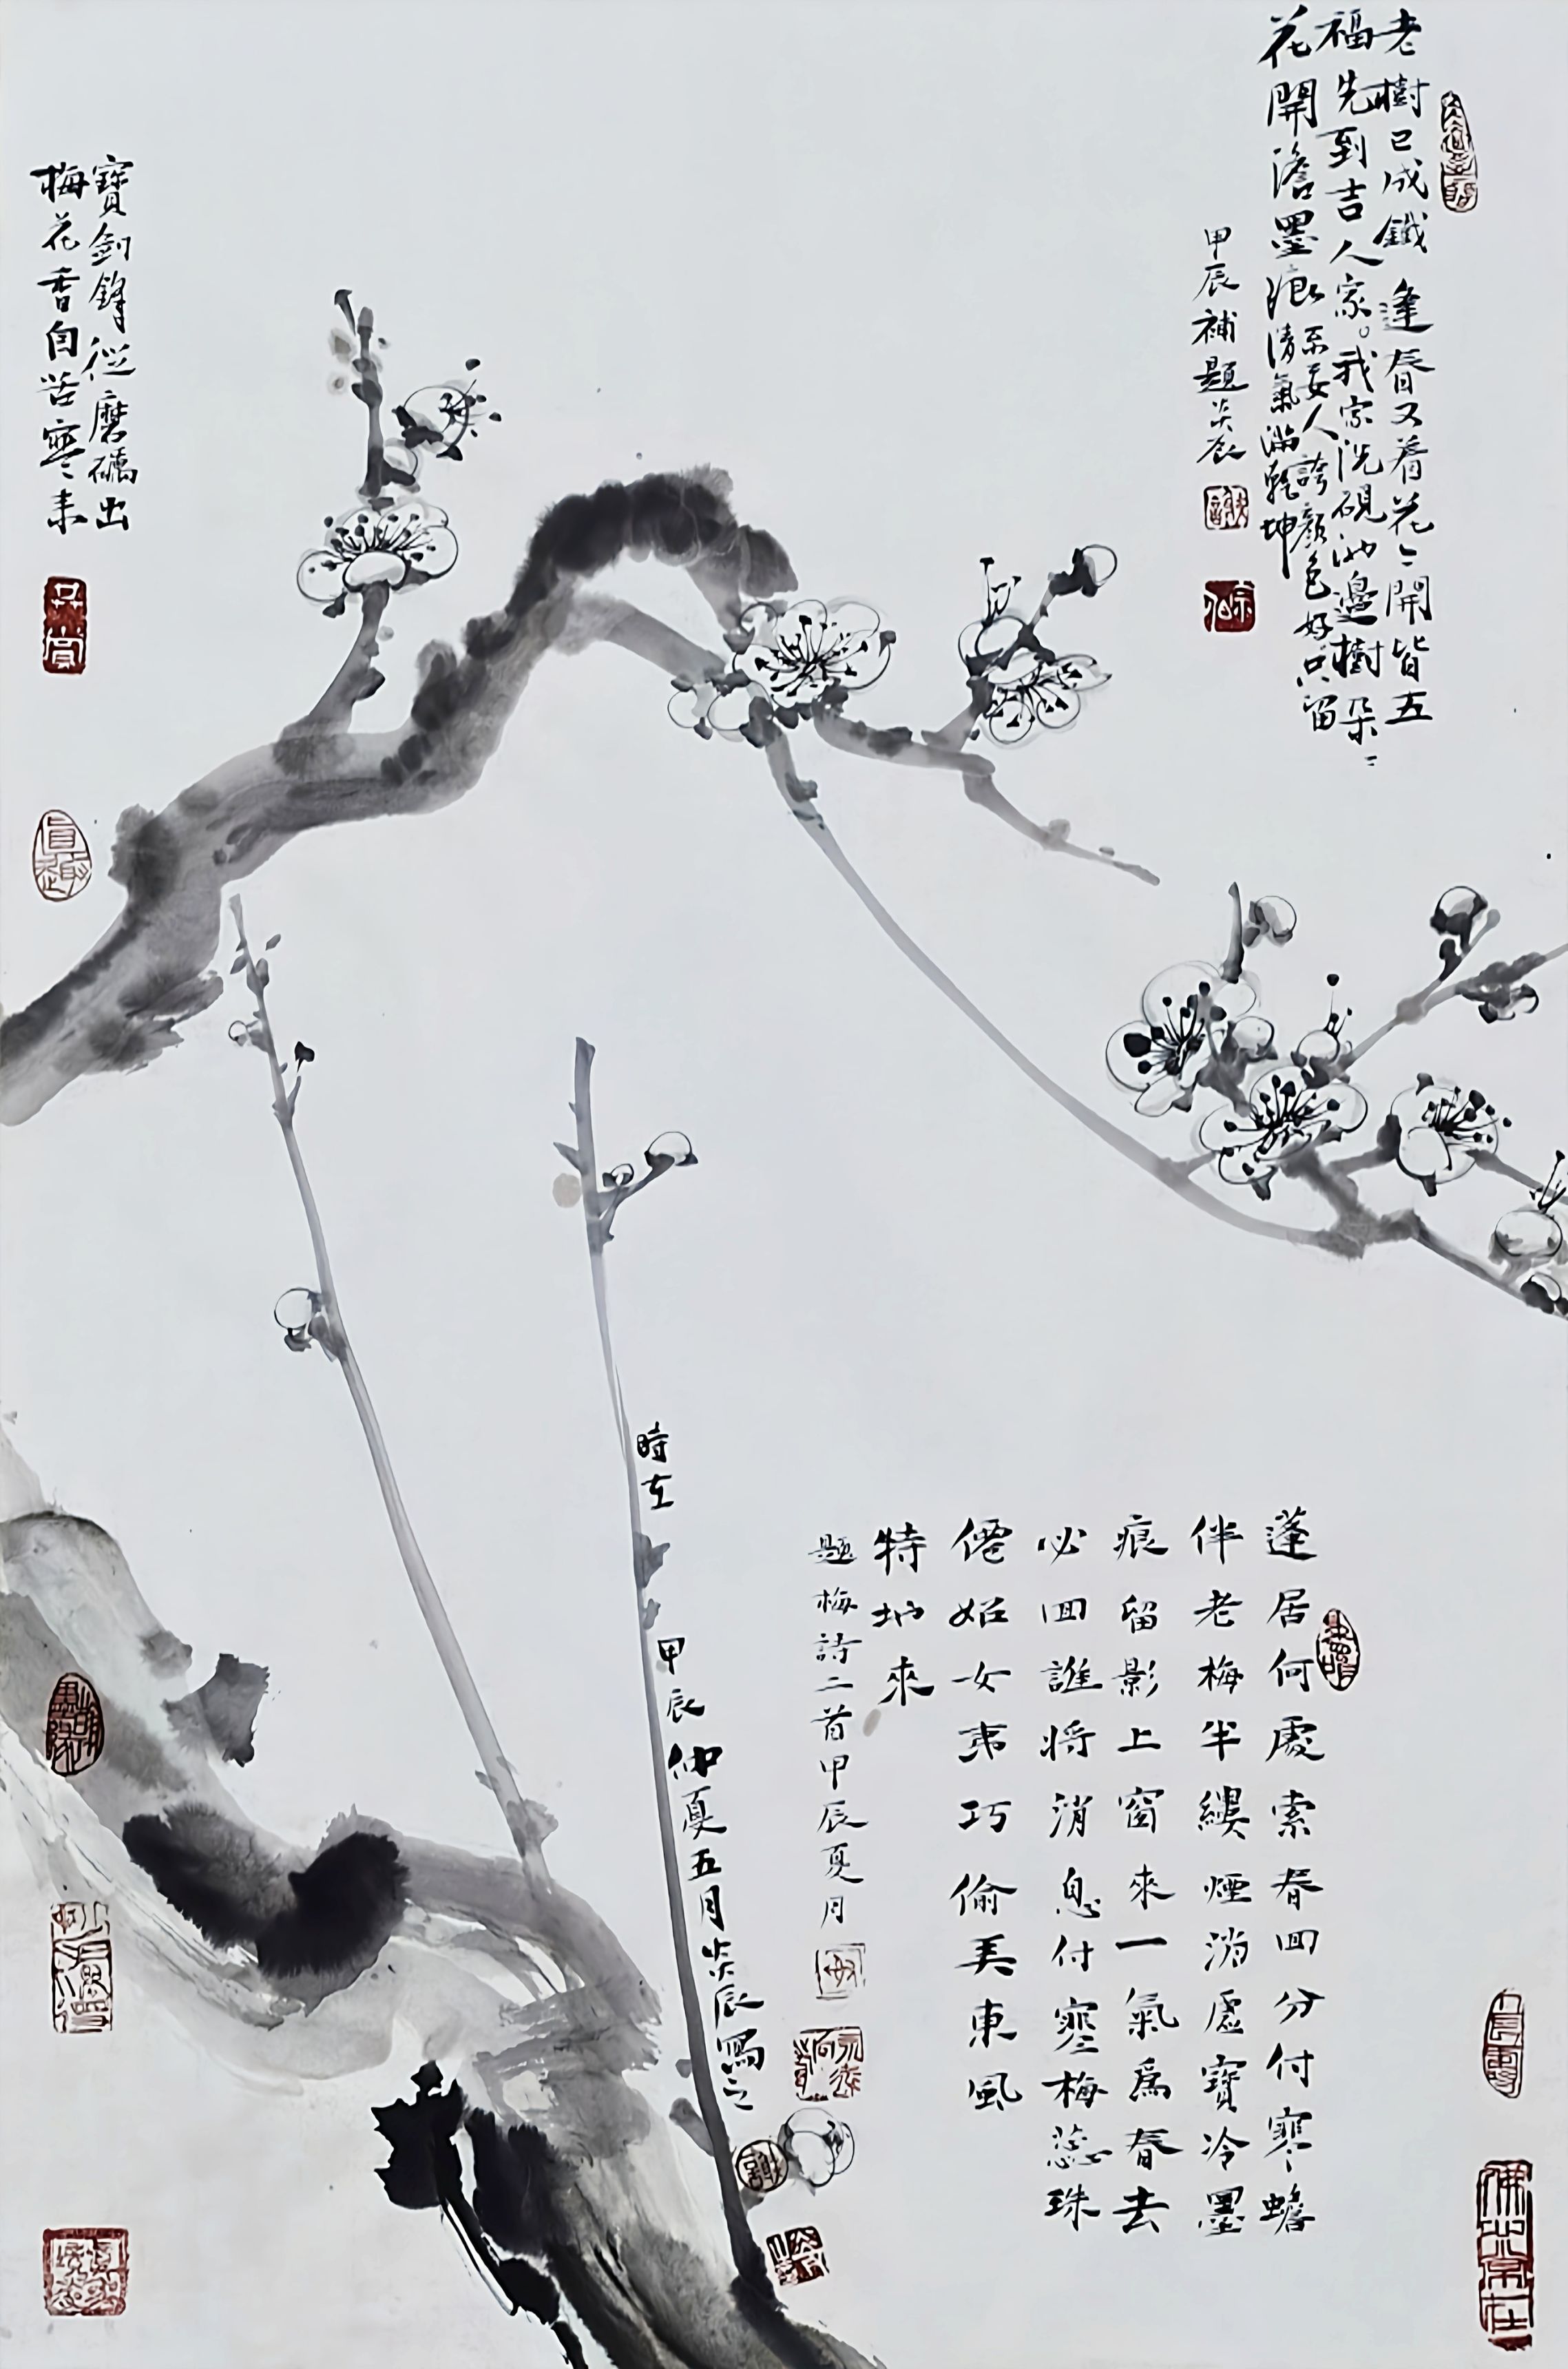 老樹已成鐵逢春又着花〻開皆五
福先到吉人家。我家洗硯池邊樹朵〻
花開澹墨痕不要人誇顏色好只留
清氣滿乾坤
甲辰補題炎辰
寶劍鋒從磨礪出
梅花香自苦寒來
共賞
時在
甲辰仲夏五月炎辰寫之
蓬居何處索春回分付寒蟾
伴老梅半縷煙消處寶冷墨
痕留影上窗來一氣為春去
必回誰將消息付寒梅蕊珠
僊姬女夷巧偷美東風
特地來
題梅詩二首甲辰夏月
佛心常在